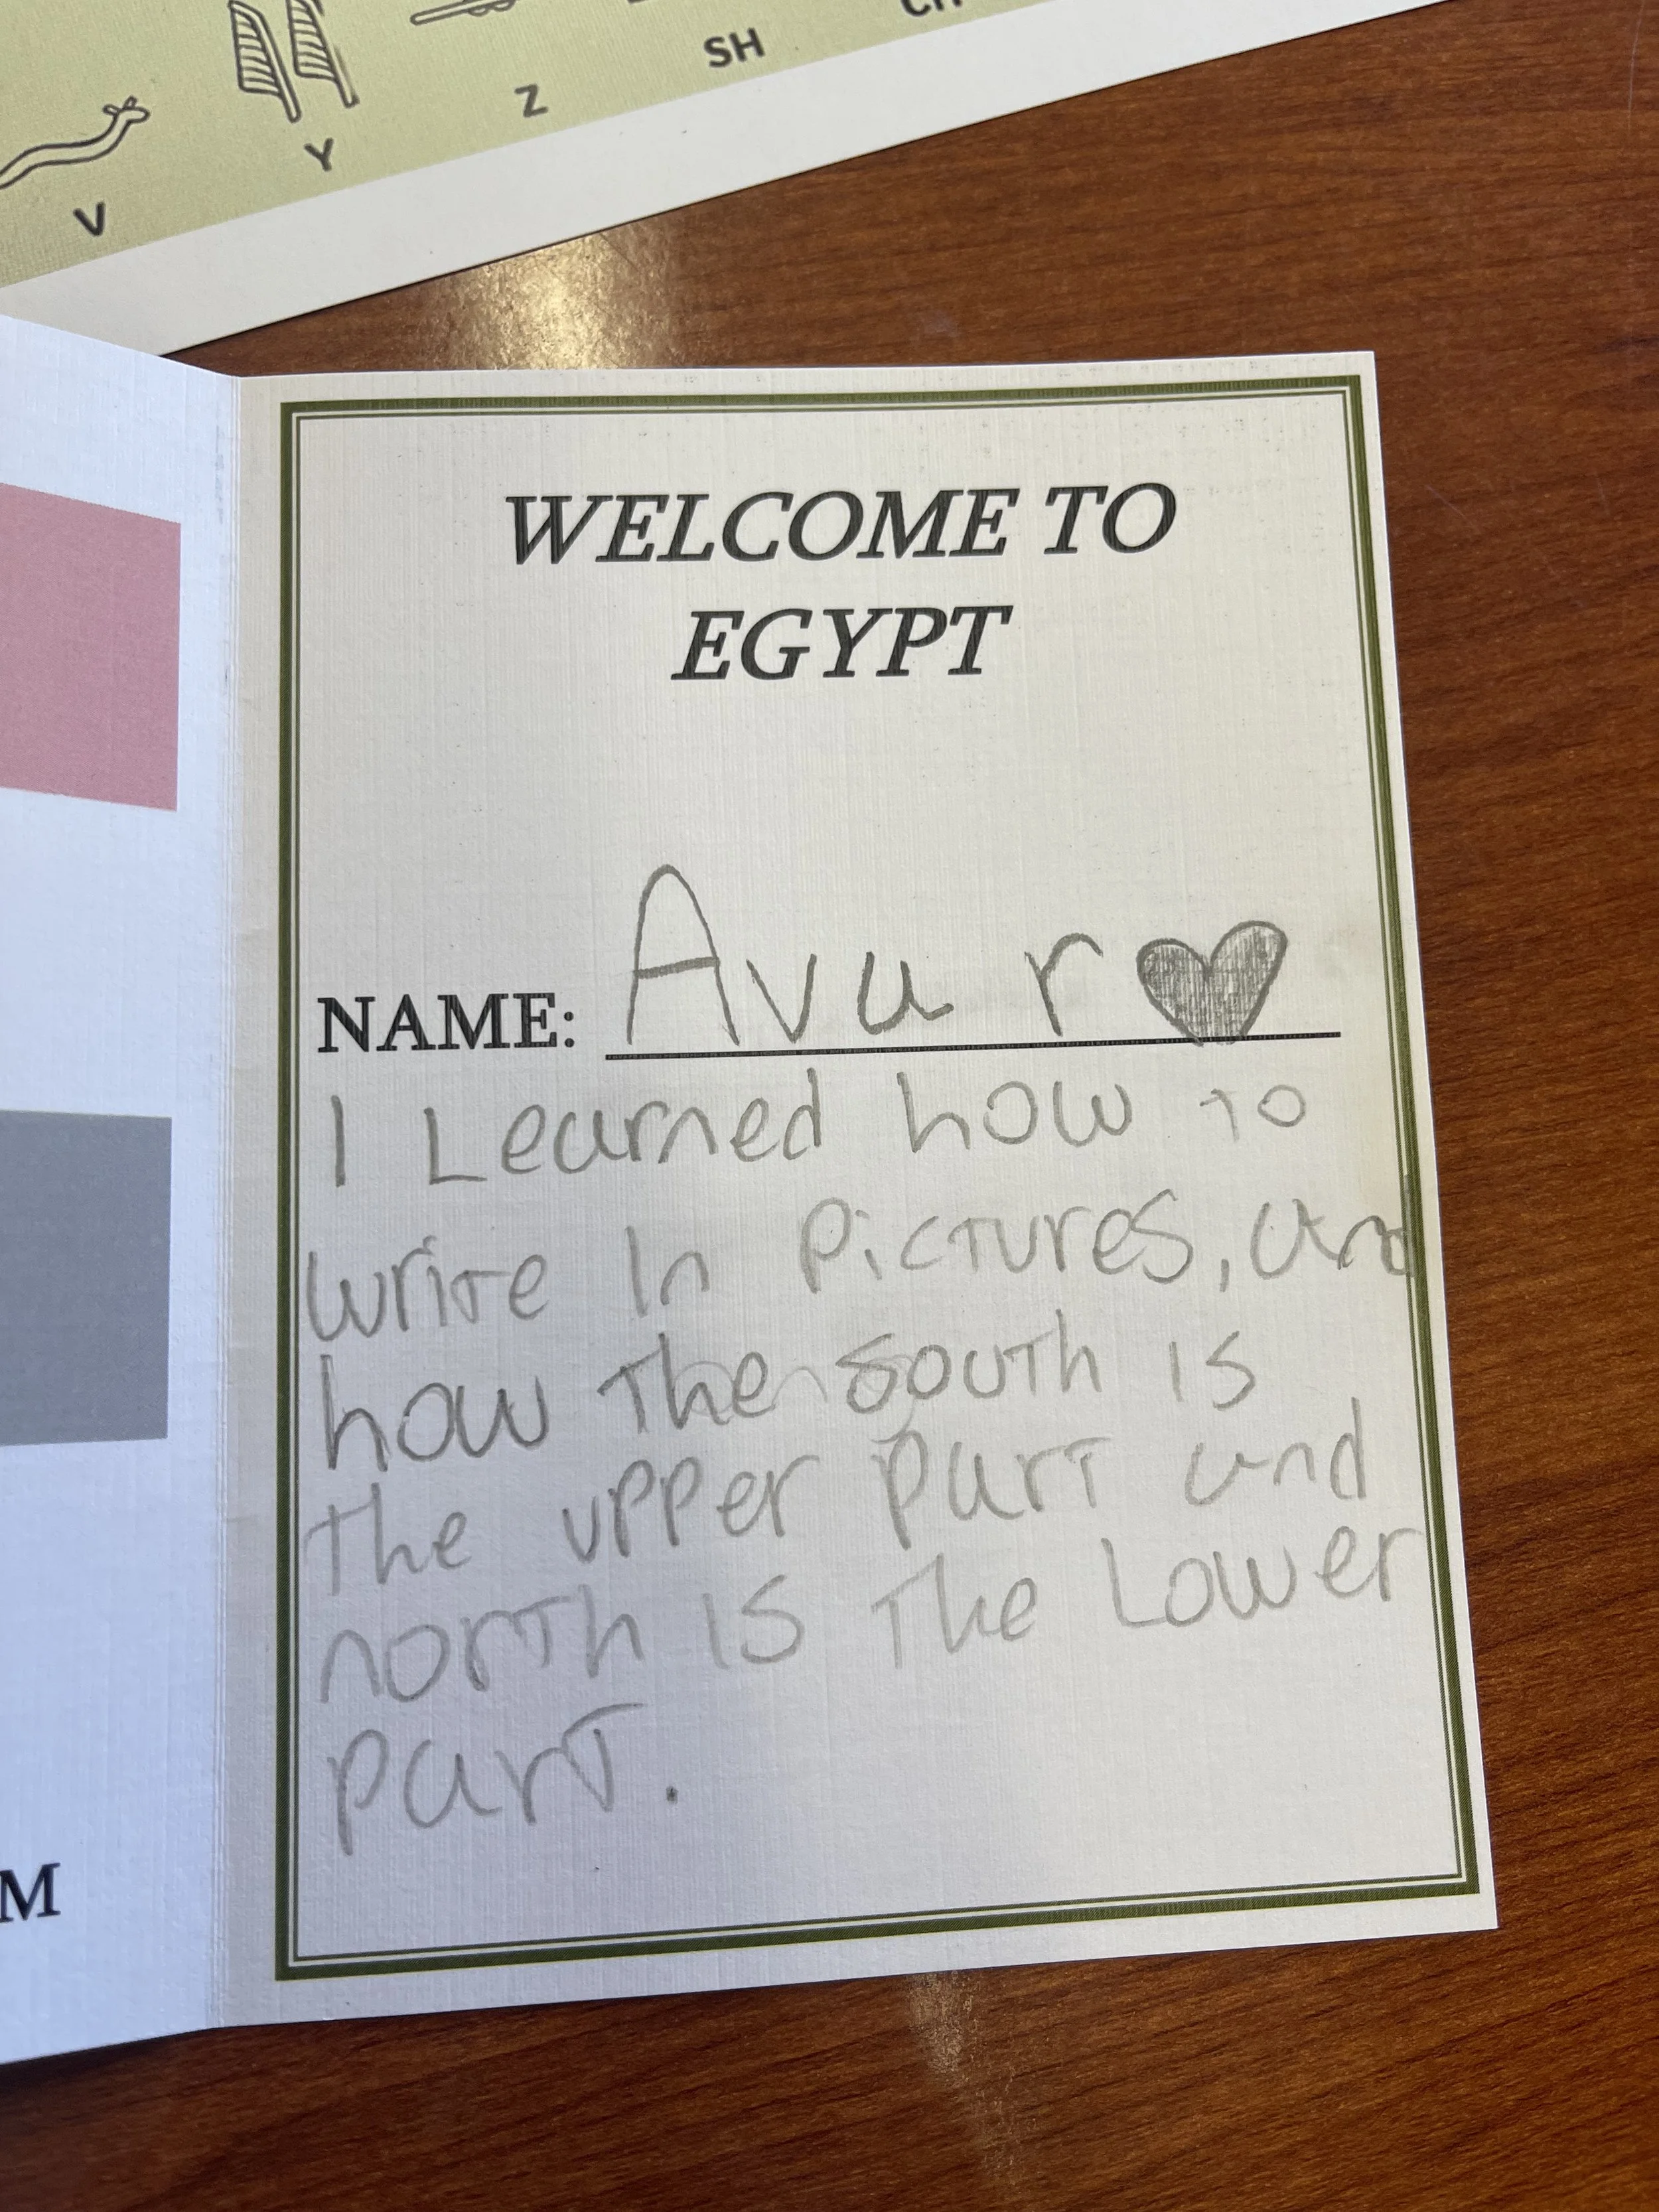 V
Y
Z
SH
CH
WELCOME TO
EGYPT
NAME: Ava r
I Learned how to
write In Pictures, and
how the south is
the upper part and
north is the Lower
part.
M